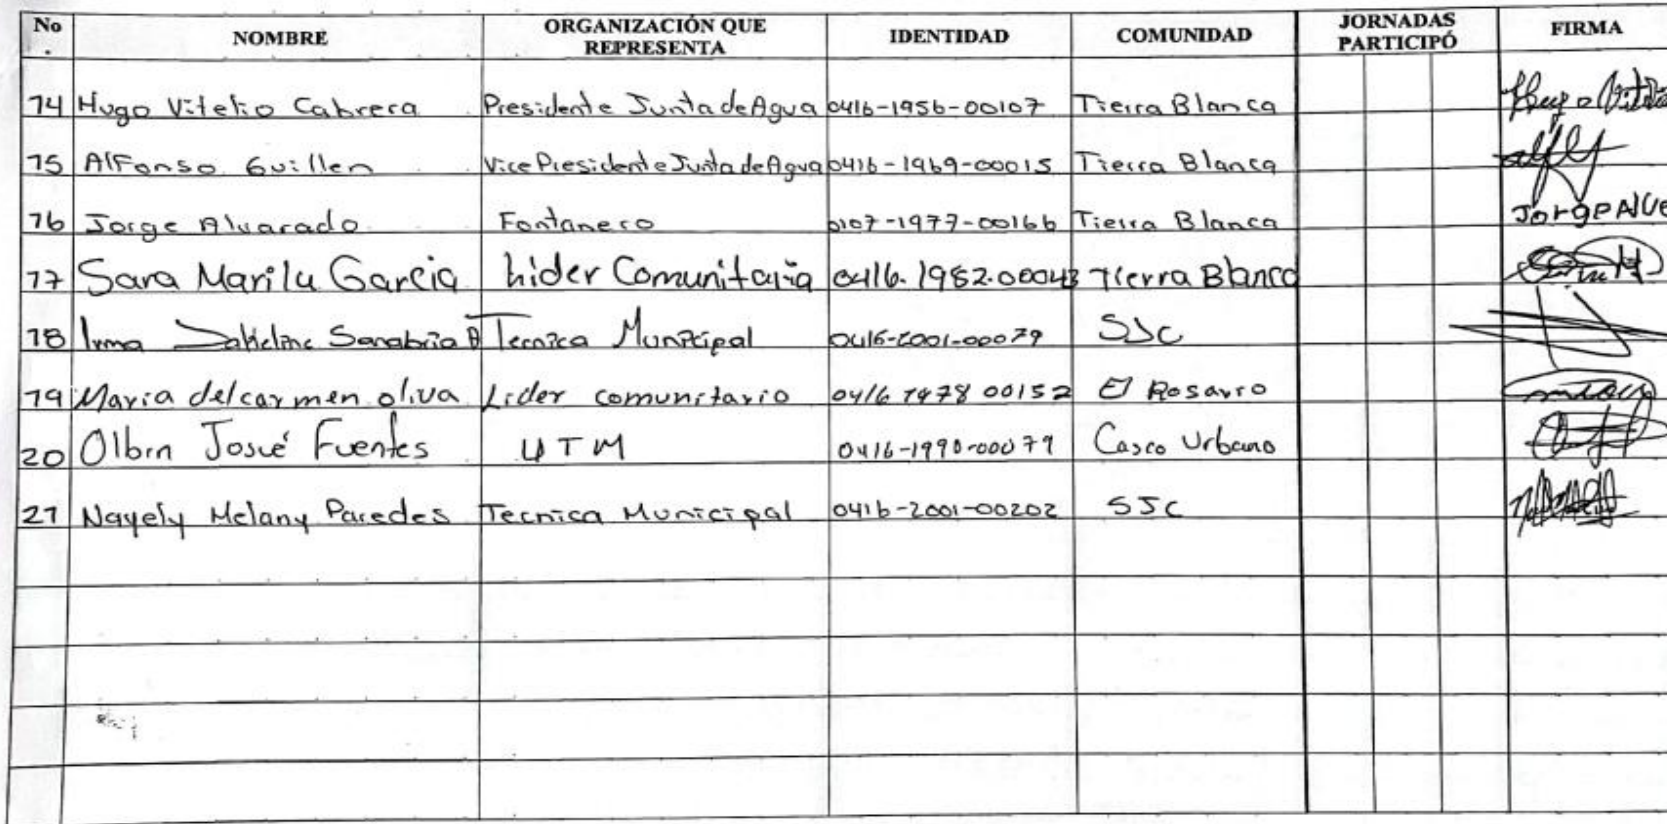 No. NOMBRE ORGANIZACIÓN QUE REPRESENTA IDENTIDAD COMUNIDAD JORNADAS PARTICIPÓ FIRMA
14 Hugo Vitelio Cabrera Presidente Junta de Agua 0416-1956-00107 Tierra Blanca Hugo
15 Alfonso Guillen Vice Presidente Junta de Agua 0416-1969-00015 Tierra Blanca
16 Jorge Alvarado Fontanero 0107-1977-00166 Tierra Blanca Jorge
17 Sara Marilu Garcia Lider Comunitaria 0416.1982.00043 Tierra Blanca
18 Irma Sanabria Tecnica Municipal 0416-2001-00079 SJC
19 Maria del carmen oliva Lider comunitario 0416 1978 00152 El Rosario
20 Olbin Josué Fuentes UTM 0416-1990-00079 Casco Urbano
21 Nayely Melany Paredes Tecnica Municipal 0416-2001-00202 SJC